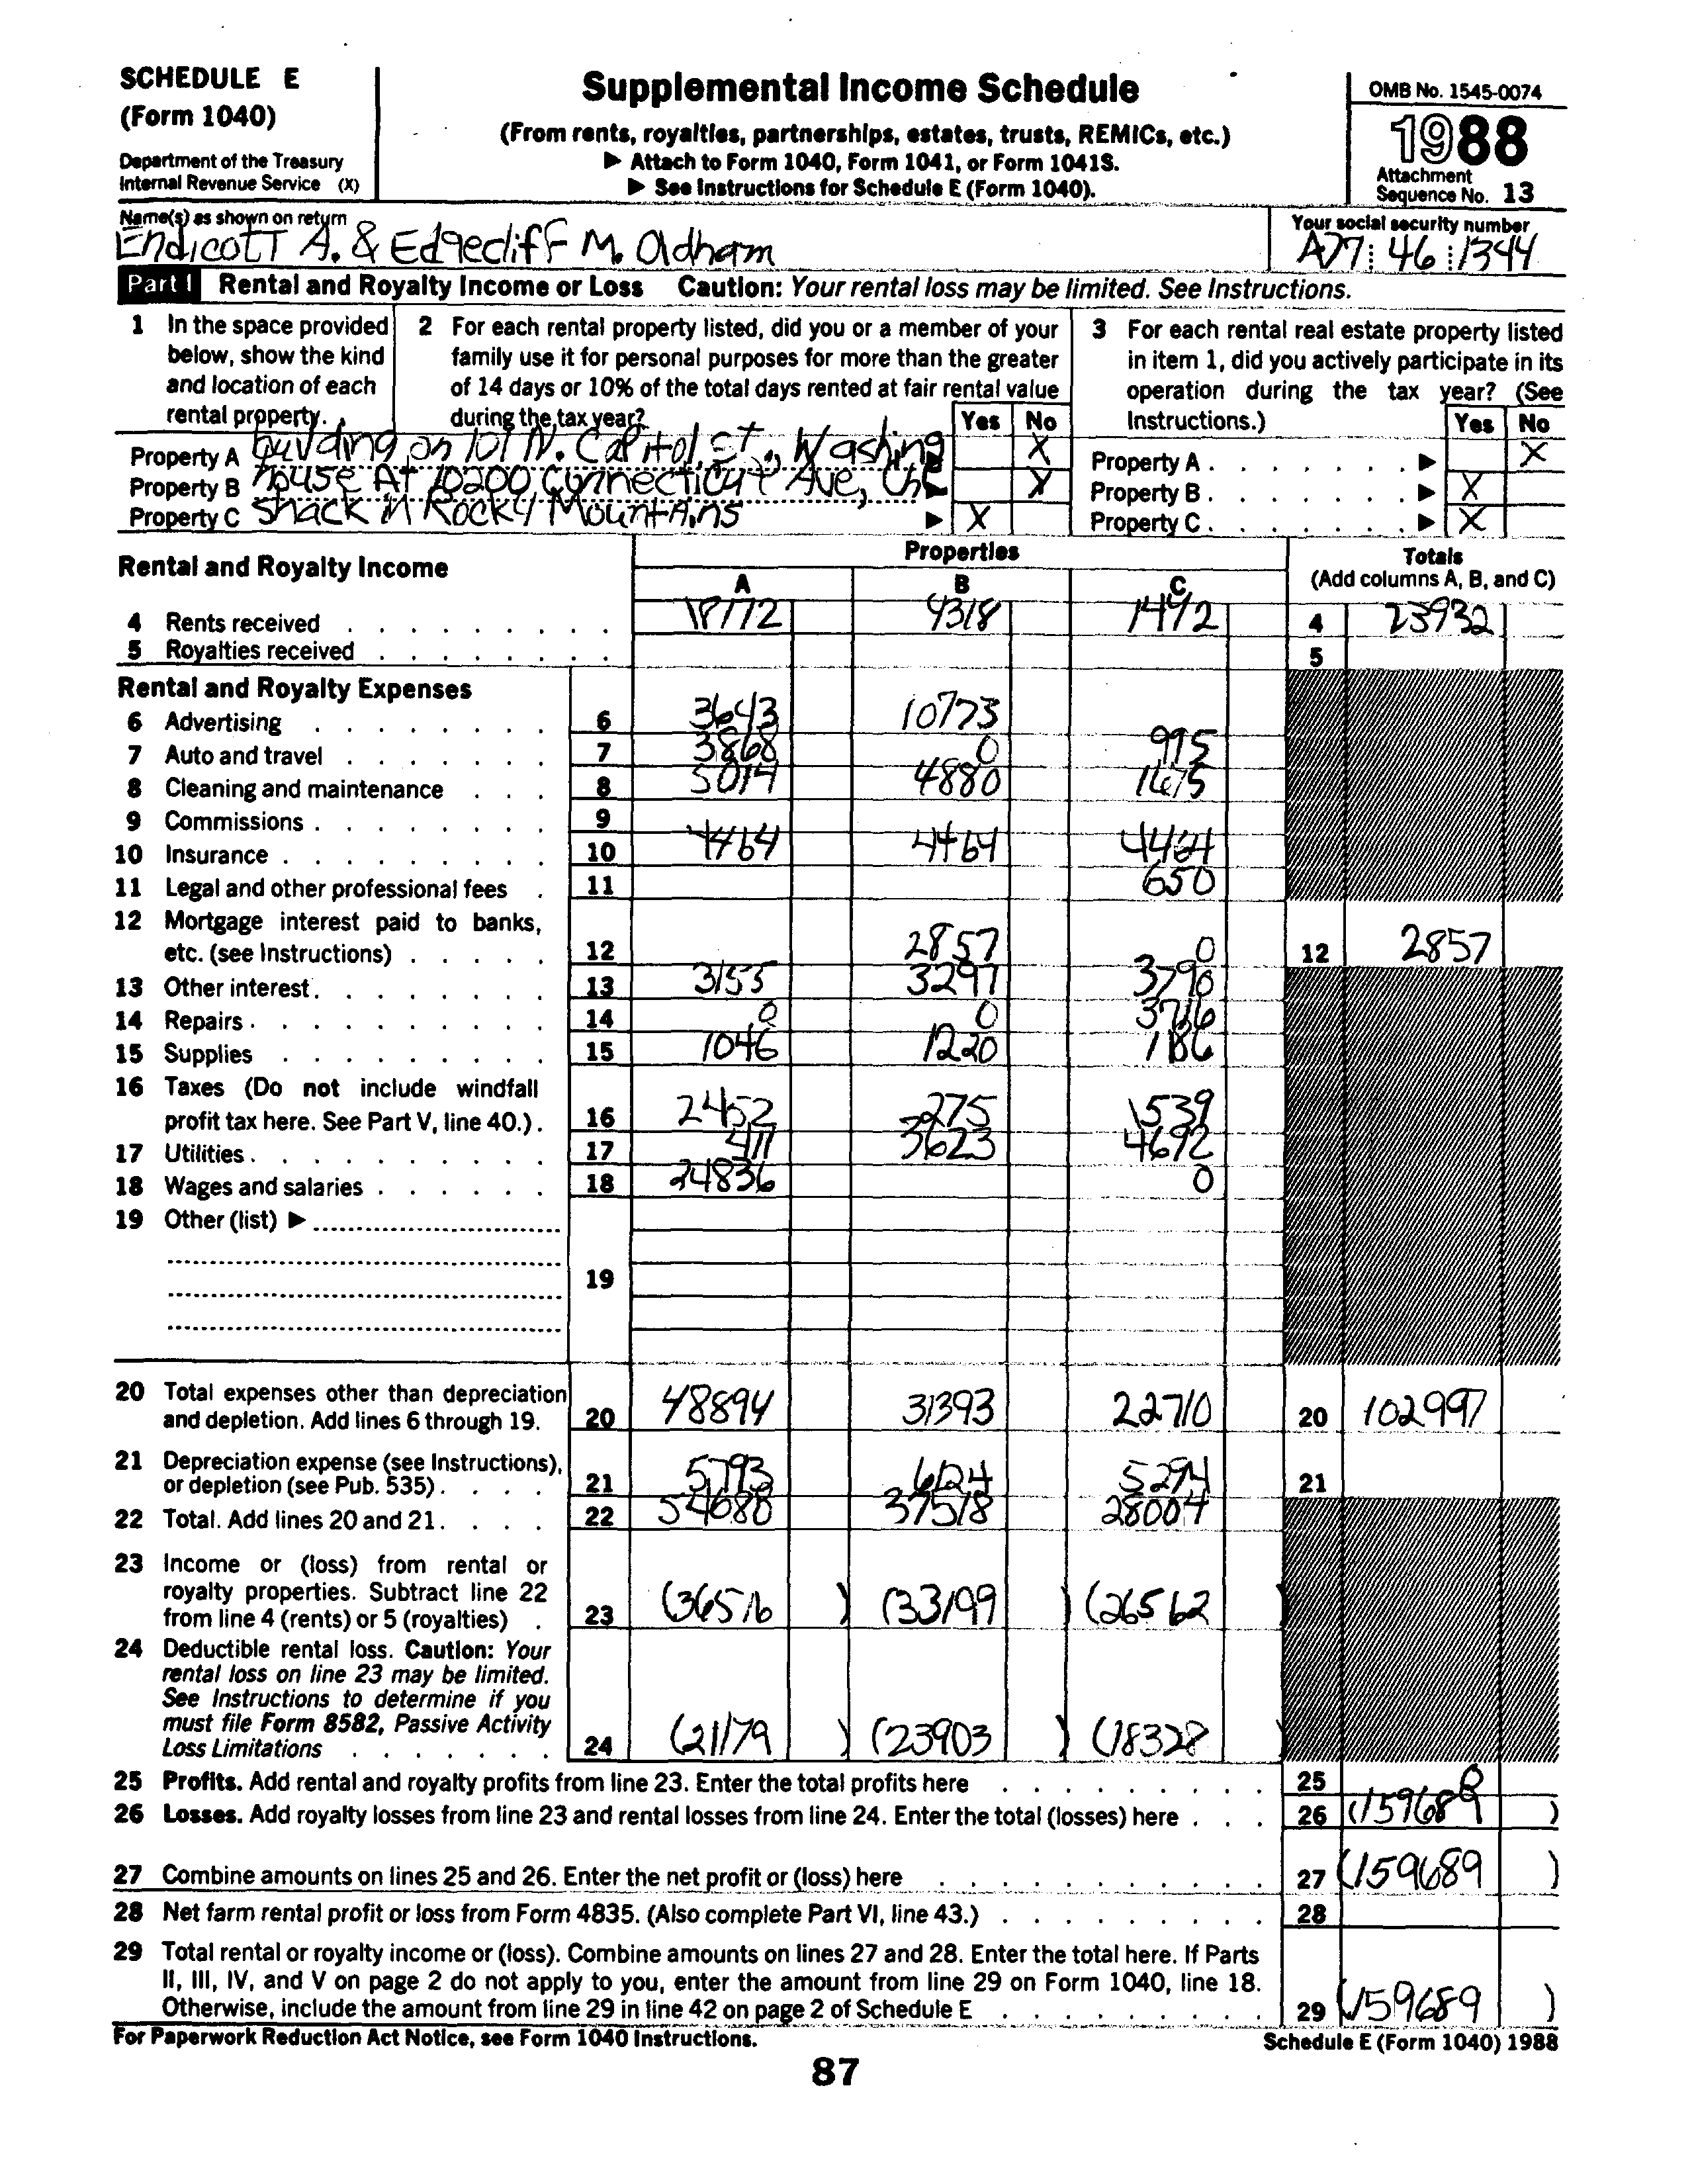 SCHEDULE E
(Form 1040)
Department of the Treasury
Internal Revenue Service (X)
Supplemental Income Schedule
(From rents, royalties, partnerships, estates, trusts, REMICs, etc.)
▶ Attach to Form 1040, Form 1041, or Form 1041S.
▶ See Instructions for Schedule E (Form 1040).
OMB No. 1545-0074
1988
Attachment
Sequence No. 13
Name(s) as shown on return
Endicott A. & Edgecliff M. Oldham
Your social security number
A77 46 1344
Part I Rental and Royalty Income or Loss Caution: Your rental loss may be limited. See Instructions.
1 In the space provided below, show the kind and location of each rental property.
2 For each rental property listed, did you or a member of your family use it for personal purposes for more than the greater of 14 days or 10% of the total days rented at fair rental value during the tax year? Yes No
3 For each rental real estate property listed in item 1, did you actively participate in its operation during the tax year? (See Instructions.) Yes No
Property A building on 101 N. Capitol St., Washing ▶ X
Property A . ▶ X
Property B house At 10200 Connecticut Ave, Ch ▶ X
Property B . ▶ X
Property C shack in Rocky Mountains ▶ X
Property C . ▶ X
Rental and Royalty Income
Properties
A B C
Totals
(Add columns A, B, and C)
4 Rents received 18172 4318 1442 4 23932
5 Royalties received 5
Rental and Royalty Expenses
6 Advertising 6 3643 10773
7 Auto and travel 7 3868 0 995
8 Cleaning and maintenance 8 5019 4880 1675
9 Commissions 9
10 Insurance 10 4464 4464 4464
11 Legal and other professional fees 11 650
12 Mortgage interest paid to banks, etc. (see Instructions) 12 2857 0 12 2857
13 Other interest 13 3155 3297 3790
14 Repairs 14 0 0 3716
15 Supplies 15 1046 1220 1186
16 Taxes (Do not include windfall profit tax here. See Part V, line 40.) 16 2452 275 1539
17 Utilities 17 411 3623 4692
18 Wages and salaries 18 24836 0
19 Other (list) ▶
19
20 Total expenses other than depreciation and depletion. Add lines 6 through 19. 20 48894 31393 22710 20 102997
21 Depreciation expense (see Instructions), or depletion (see Pub. 535) 21 5793 6124 5294 21
22 Total. Add lines 20 and 21. 22 54688 37518 28004
23 Income or (loss) from rental or royalty properties. Subtract line 22 from line 4 (rents) or 5 (royalties) 23 (36516) (33199) (26562)
24 Deductible rental loss. Caution: Your rental loss on line 23 may be limited. See Instructions to determine if you must file Form 8582, Passive Activity Loss Limitations 24 (21179) (23903) (18328)
25 Profits. Add rental and royalty profits from line 23. Enter the total profits here 25 0
26 Losses. Add royalty losses from line 23 and rental losses from line 24. Enter the total (losses) here 26 (159689)
27 Combine amounts on lines 25 and 26. Enter the net profit or (loss) here 27 (159689)
28 Net farm rental profit or loss from Form 4835. (Also complete Part VI, line 43.) 28
29 Total rental or royalty income or (loss). Combine amounts on lines 27 and 28. Enter the total here. If Parts II, III, IV, and V on page 2 do not apply to you, enter the amount from line 29 on Form 1040, line 18. Otherwise, include the amount from line 29 in line 42 on page 2 of Schedule E 29 (159689)
For Paperwork Reduction Act Notice, see Form 1040 Instructions.
Schedule E (Form 1040) 1988
87